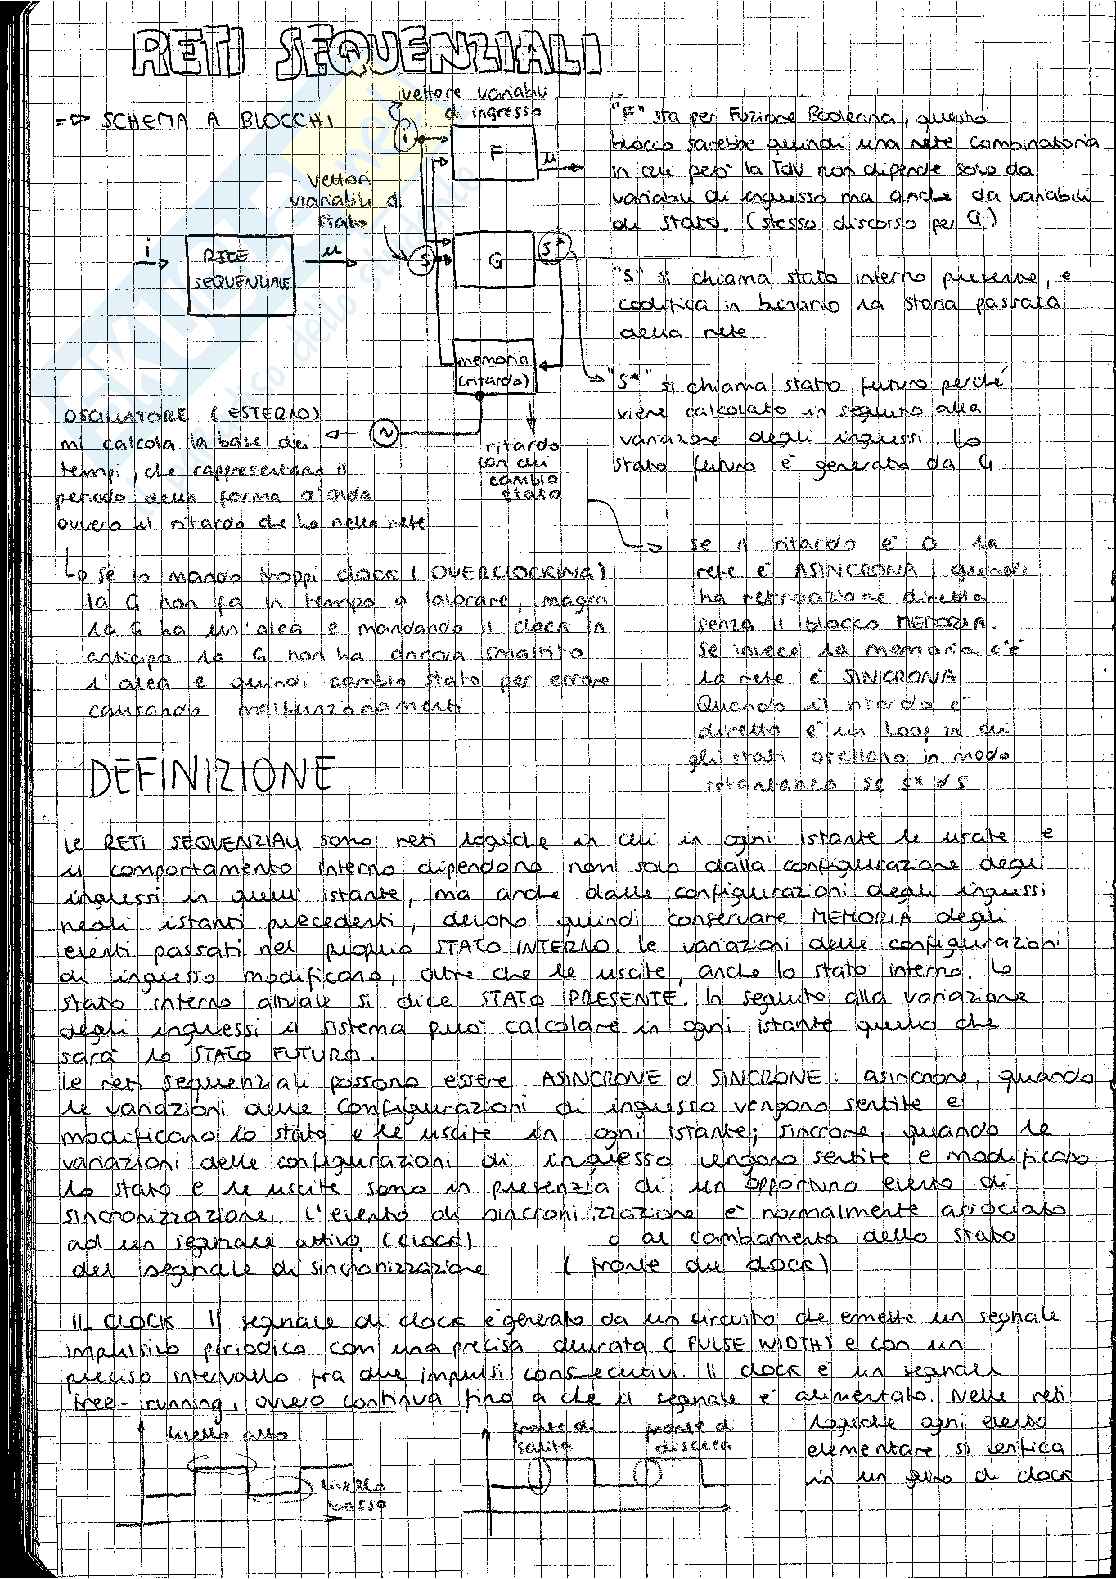 RETI SEQUENZIALI
=> SCHEMA A BLOCCHI
vettore variabili
di ingresso
i
F
u
vettori
variabili di
stato
i
RETE
SEQUENZIALE
u
S
G
S*
memoria
(ritardo)
ritardo
con cui
cambio
stato
"F" sta per Funzione Booleana, questo
blocco sarebbe quindi una rete combinatoria
in cui però la TdV non dipende solo da
variabili di ingresso ma anche da variabili
di stato. (stesso discorso per G)
"S" si chiama stato interno presente, e
codifica in binario la storia passata
della rete
"S*" si chiama stato futuro perché
viene calcolato in seguito alla
variazione degli ingressi. Lo
stato futuro è generato da G
OSCILLATORE (ESTERNO)
mi calcola la base dei
tempi, che rappresentano il
periodo della forma d'onda
ovvero il ritardo che ho nella rete
N
se il ritardo è 0 la
rete è ASINCRONA, quindi
ha retroazione diretta
senza il blocco MEMORIA.
se invece la memoria c'è
la rete è SINCRONA
Quando il ritardo è
diretto è un Loop in cui
gli stati oscillano in modo
istantaneo se S* ≠ S
Lo se lo mando troppi clock (OVERCLOCKING)
la G non fa in tempo a lavorare, magari
la G ha un'alea e mandando il clock in
anticipo la G non ha ancora smaltito
l'alea e quindi cambio stato per errore
causando malfunzionamenti
DEFINIZIONE
Le RETI SEQUENZIALI sono reti logiche in cui in ogni istante le uscite e
il comportamento interno dipendono non solo dalla configurazione degli
ingressi in quell'istante, ma anche dalle configurazioni degli ingressi
negli istanti precedenti, devono quindi conservare MEMORIA degli
eventi passati nel proprio STATO INTERNO. Le variazioni delle configurazioni
di ingresso modificano, oltre che le uscite, anche lo stato interno. Lo
stato interno attuale si dice STATO PRESENTE. In seguito alla variazione
degli ingressi il sistema può calcolare in ogni istante quello che
sarà lo STATO FUTURO.
Le reti sequenziali possono essere ASINCRONE o SINCRONE: asincrone, quando
le variazioni delle configurazioni di ingresso vengono sentite e
modificano lo stato e le uscite in ogni istante; sincrone, quando le
variazioni delle configurazioni di ingresso vengono sentite e modificano
lo stato e le uscite sono in presenza di un opportuno evento di
sincronizzazione. L'evento di sincronizzazione è normalmente associato
ad un segnale attivo (clock) o al cambiamento dello stato
del segnale di sincronizzazione (fronte del clock)
IL CLOCK Il segnale di clock è generato da un circuito che emette un segnale
impulsivo periodico con una precisa durata (PULSE WIDTH) e con un
preciso intervallo tra due impulsi consecutivi. Il clock è un segnale
free-running, ovvero continua fino a che il segnale è alimentato. Nelle reti
logiche ogni evento
elementare si verifica
in un giro di clock
livello alto
livello
basso
fronte di
salita
fronte di
discesa